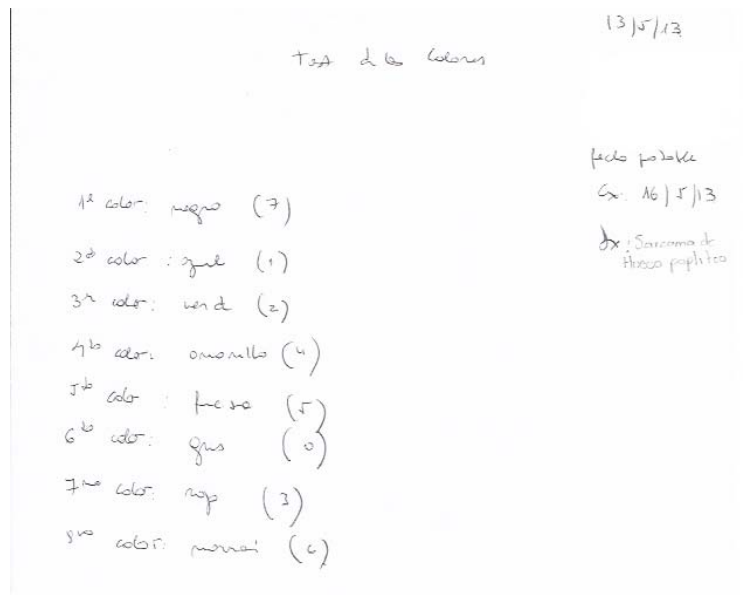 13/5/13
Test de los Colores
fecha probable
Cx: 16/5/13
Dx: Sarcoma de
Hueco poplíteo
1er color: negro (7)
2do color: azul (1)
3er color: verde (2)
4to color: amarillo (4)
5to color: fucsia (5)
6to color: gris (0)
7mo color: rojo (3)
8vo color: marrón (6)